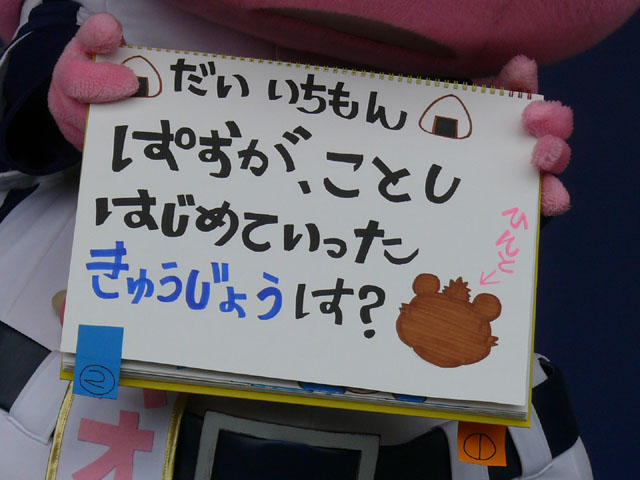 だい いちもん
ぱおが、ことし
はじめていった
きゅうじょうは?
ひんと
②
①
オ